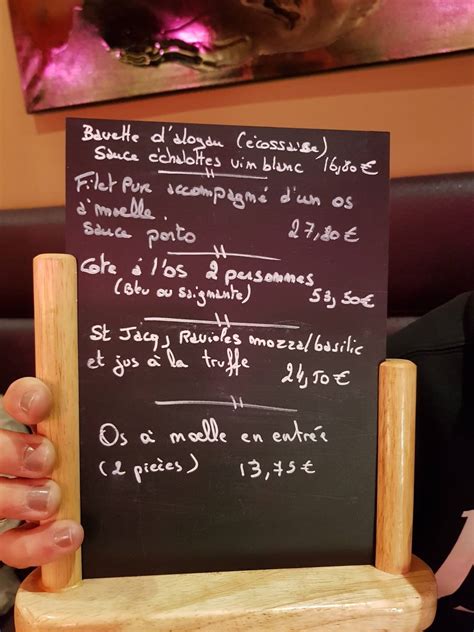 Bavette d'aloyau (écossaise)
Sauce échalottes vin blanc 16,80€
Filet Pur accompagné d'un os
à moelle.
sauce porto 27,80€
Cote à l'os 2 personnes
(Bleu ou Saignante) 53,50€
St Jacq, Ravioles mozza/basilic
et jus à la truffe 24,50€
Os à moelle en entrée
(2 pièces) 13,75€